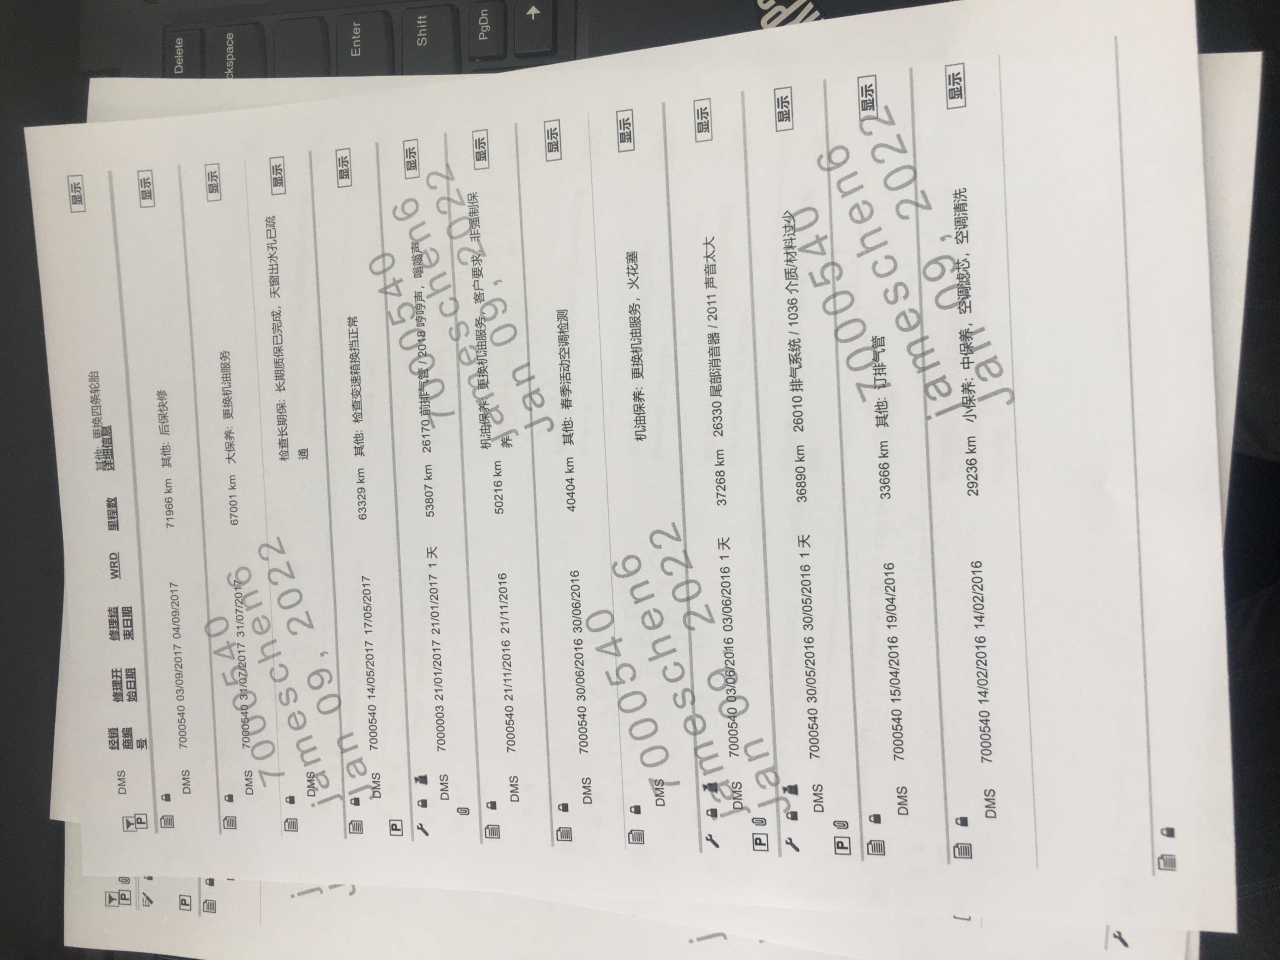 Delete
ckspace
Enter
Shift
PgDn
DMS
经销商编号
修理开始日期
修理结束日期
WRD
里程数
详细信息
其他: 更换四条轮胎
显示
DMS 7000540 03/09/2017 04/09/2017 71966 km 其他: 后保快修 显示
DMS 7000540 31/07/2017 31/07/2017 67001 km 大保养: 更换机油服务 显示
DMS 检查长期保: 长期质保已完成，天窗出水孔已疏通 显示
DMS 7000540 14/05/2017 17/05/2017 63329 km 其他: 检查变速箱换挡正常 显示
P
DMS 7000003 21/01/2017 21/01/2017 1 天 53807 km 26170 前排气管 / 2018 哼哼声，嗡嗡声 显示
DMS 7000540 21/11/2016 21/11/2016 50216 km 机油保养: 更换机油服务，客户要求，非强制保养 显示
DMS 7000540 30/06/2016 30/06/2016 40404 km 其他: 春季活动空调检测 显示
DMS 机油保养: 更换机油服务，火花塞 显示
DMS 7000540 03/06/2016 03/06/2016 1 天 37268 km 26330 尾部消音器 / 2011 声音太大 显示
P
DMS 7000540 30/05/2016 30/05/2016 1 天 36890 km 26010 排气系统 / 1036 介质/材料过少 显示
P
DMS 7000540 15/04/2016 19/04/2016 33666 km 其他: 订排气管 显示
DMS 7000540 14/02/2016 14/02/2016 29236 km 小保养: 中保养，空调滤芯，空调清洗 显示
7000540
jameschen6
jan 09, 2022
7000540
jameschen6
jan 09, 2022
7000540
jameschen6
jan 09, 2022
7000540
jameschen6
jan 09, 2022